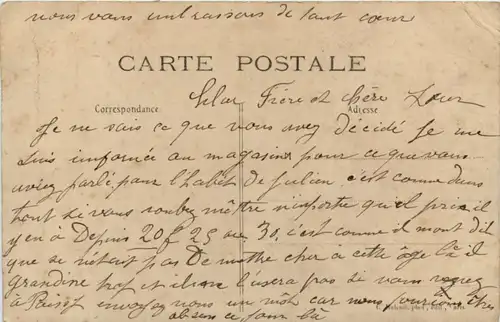 nous vous embrassons de tout cœur
CARTE POSTALE
Correspondance
Adresse
Cher Frère et chère Sœur
Je ne sais ce que vous avez décidé je me
suis informée au magasin pour ce que vous
aviez parlé pour l'habit de Julien c'est comme dans
tout si vous voulez mettre n'importe quel prix il
y en a Depuis 20f 25 ou 30. c'est comme il mont dit
que se nétait pas De mettre cher a cette âge là il
grandira trop et il ne l'usera pas si vous venez
à envoyez nous un mot car nous pourrions être
absen ce jour là